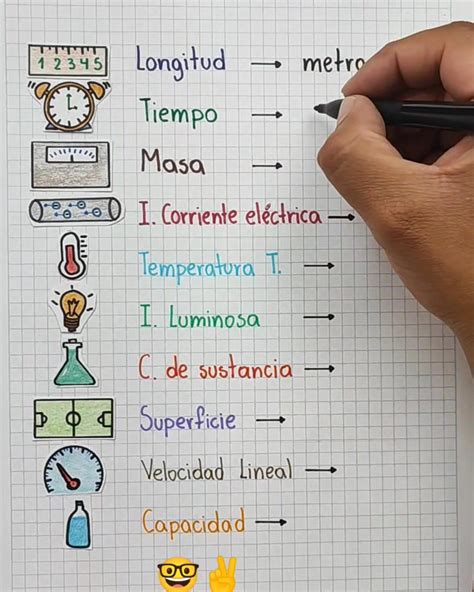 1 2 3 4 5
Longitud → metro
Tiempo →
Masa →
I. Corriente eléctrica →
Temperatura T. →
I. Luminosa →
C. de sustancia →
Superficie →
Velocidad Lineal →
Capacidad →